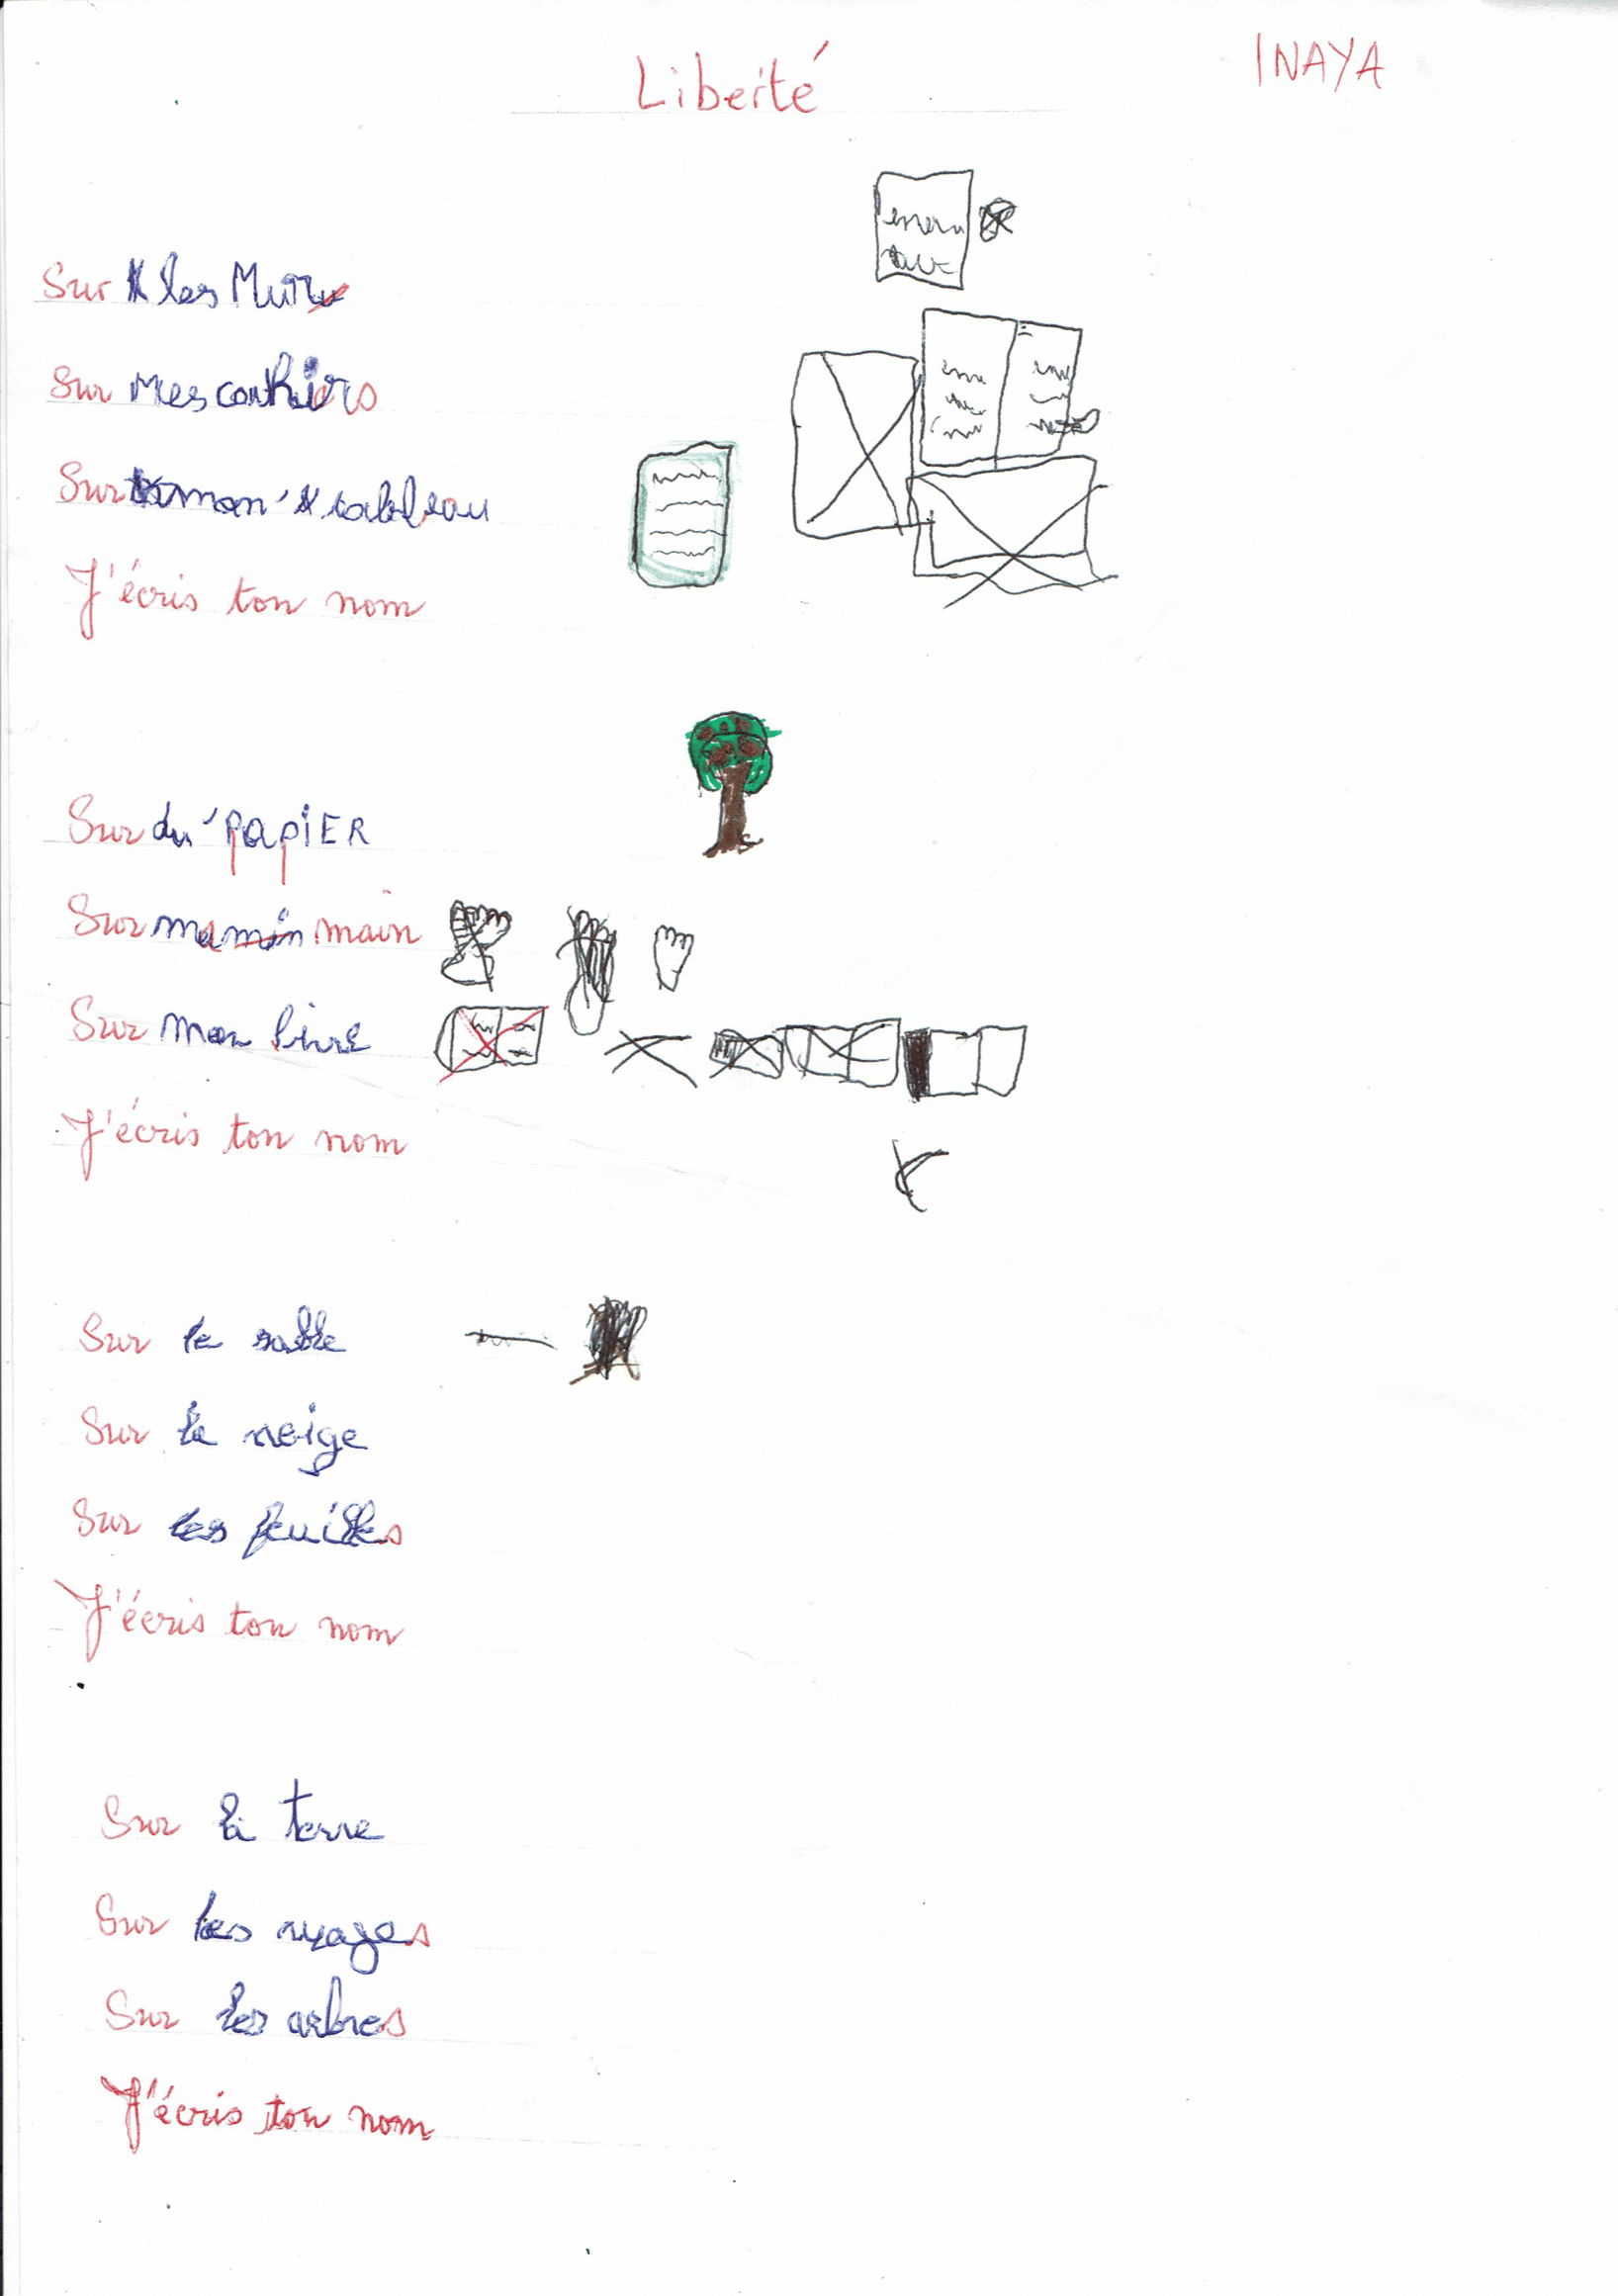 Liberté
INAYA
Sur les Mur
Sur Mes cahiers
Sur mon tableau
J'écris ton nom
Sur du papier
Sur ma main
Sur mon livre
J'écris ton nom
Sur le sable
Sur la neige
Sur les feuilles
J'écris ton nom
Sur la terre
Sur les nuages
Sur les arbres
J'écris ton nom